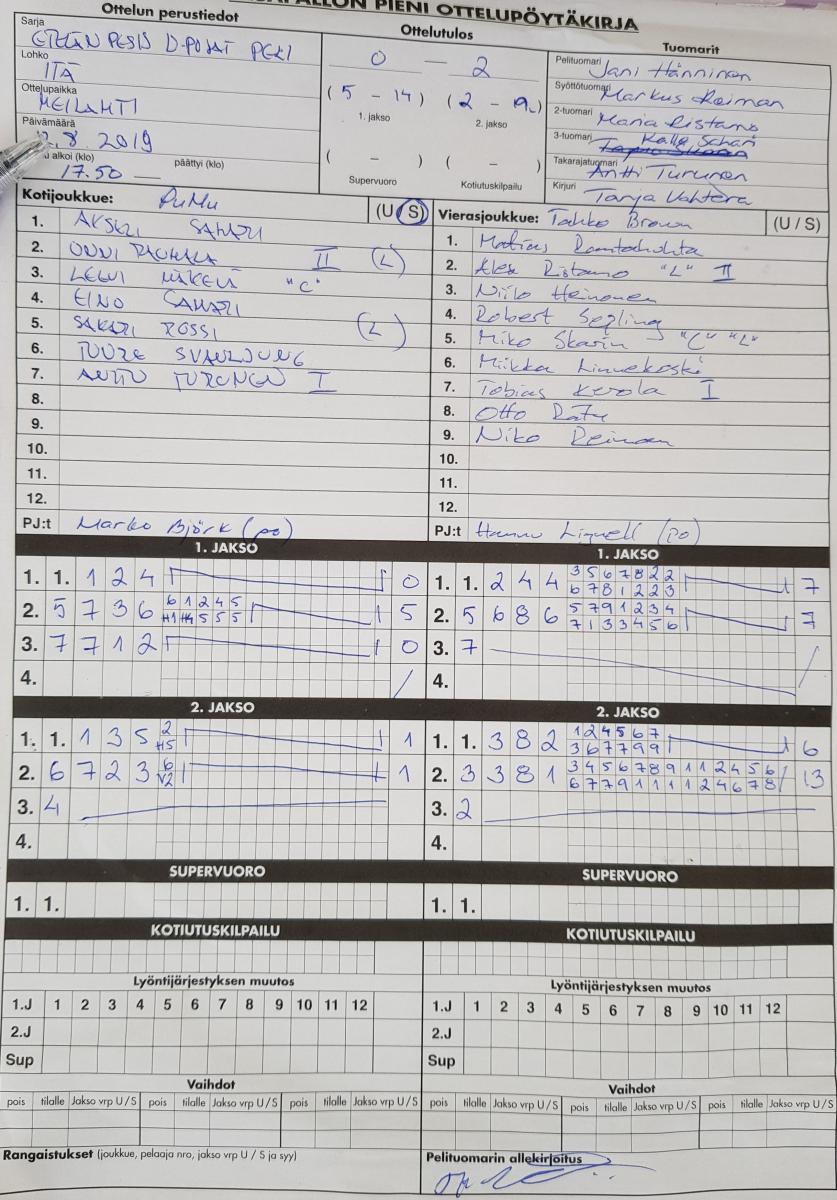 PIENI OTTELUPÖYTÄKIRJA
Ottelun perustiedot
Sarja
ETELÄN PESIS D-POJAT
Lohko
ITÄ
Ottelupaikka
MEILAHTI
Päivämäärä
.8.2019
alkoi (klo) päättyi (klo)
17.50 —
Ottelutulos
0 — 2
(5 - 14) (2 - 19)
1. jakso 2. jakso
( - ) ( - )
Supervuoro Kotiutuskilpailu
Tuomarit
Pelituomari Jani Hänninen
Syöttötuomari Markus Reiman
2-tuomari Maria Ristamo
3-tuomari Kalle
Takarajatuomari Antti Turunen
Kirjuri Tarja Vahtera
Kotijoukkue: PuMu (U/S)
1. SAHARI
2. ONNI II (L)
3. LEEVI MÄKELÄ "C"
4. EINO SAHARI
5. SAKARI ROSSI (L)
6. TUURE
7. ANTTU TURUNEN I
8.
9.
10.
11.
12.
PJ:t Marko Björk (po)
Vierasjoukkue: Tahko Brown (U / S)
1. Matias Rantahuhta
2. Alex Ristamo "L" II
3. Niilo Heinonen
4. Robert
5. Miko Skarin "C" "L"
6. Miikka Linnekoski
7. Tobias Kerola I
8. Otto Räty
9. Niko Reiman
10.
11.
12.
PJ:t Hannu (po)
1. JAKSO
1. 1. 1 2 4 0
2. 5 7 3 6 6 1 2 4 5 5
H1 H4 5 5 5
3. 7 7 1 2 0
4. /
1. JAKSO
1. 1. 2 4 4 3 5 6 7 8 2 2 7
6 7 8 1 2 2 3
2. 5 6 8 6 5 7 9 1 2 3 4 7
7 1 3 3 4 5 6
3. 7 /
4.
2. JAKSO
1. 1. 1 3 5 2 1
H5
2. 6 7 2 3 6 1
V2
3. 4
4.
2. JAKSO
1. 1. 3 8 2 1 2 4 5 6 7 6
3 6 7 7 9 9
2. 3 3 8 1 3 4 5 6 7 8 9 1 1 2 4 5 6 / 13
6 7 7 9 1 1 1 1 2 4 6 7 8
3. 2
4.
SUPERVUORO
1. 1.
SUPERVUORO
1. 1.
KOTIUTUSKILPAILU
KOTIUTUSKILPAILU
Lyöntijärjestyksen muutos
1.J 1 2 3 4 5 6 7 8 9 10 11 12
2.J
Sup
Lyöntijärjestyksen muutos
1.J 1 2 3 4 5 6 7 8 9 10 11 12
2.J
Sup
Vaihdot
pois tilalle Jakso vrp U / S pois tilalle Jakso vrp U / S pois tilalle Jakso vrp U / S
Vaihdot
pois tilalle Jakso vrp U / S pois tilalle Jakso vrp U / S pois tilalle Jakso vrp U / S
Rangaistukset (joukkue, pelaaja nro, jakso vrp U / S ja syy)
Pelituomarin allekirjoitus